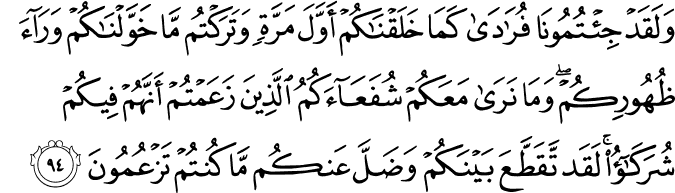 وَلَقَدۡ جِئۡتُمُونَا فُرَٰدَىٰ كَمَا خَلَقۡنَٰكُمۡ أَوَّلَ مَرَّةٖ وَتَرَكۡتُم مَّا خَوَّلۡنَٰكُمۡ وَرَآءَ
ظُهُورِكُمۡۖ وَمَا نَرَىٰ مَعَكُمۡ شُفَعَآءَكُمُ ٱلَّذِينَ زَعَمۡتُمۡ أَنَّهُمۡ فِيكُمۡ
شُرَكَٰٓؤُاْۚ لَقَد تَّقَطَّعَ بَيۡنَكُمۡ وَضَلَّ عَنكُم مَّا كُنتُمۡ تَزۡعُمُونَ ٩٤